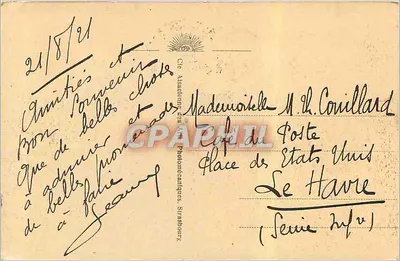 21/8/21
Amitiés et
Bon Souvenir
que de belles choses
à admirer et
de belles promenades
à faire
Jeanne
Cie Alsacienne des Arts Photomécaniques, Strasbourg.
Mademoiselle M. Th. Couillard
Café du Poste
Place des Etats Unis
Le Havre
(Seine Infre)
CPAPHIL